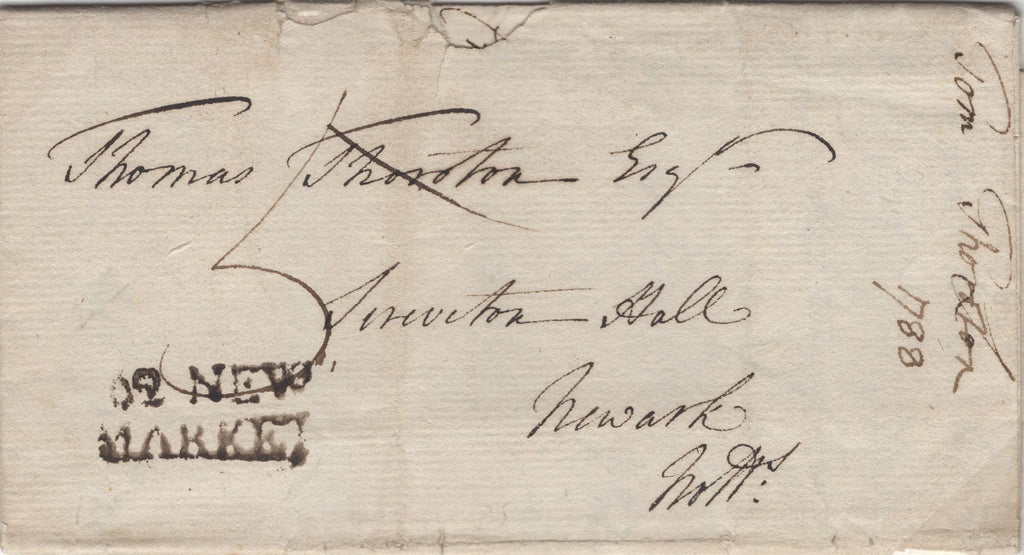 Thomas Thoroton Esqr
Screveton Hall
Newark
Notts.
5
62 NEW
MARKET
Tom Thoroton
1788